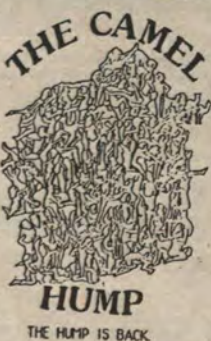 THE CAMEL
HUMP
THE HUMP IS BACK